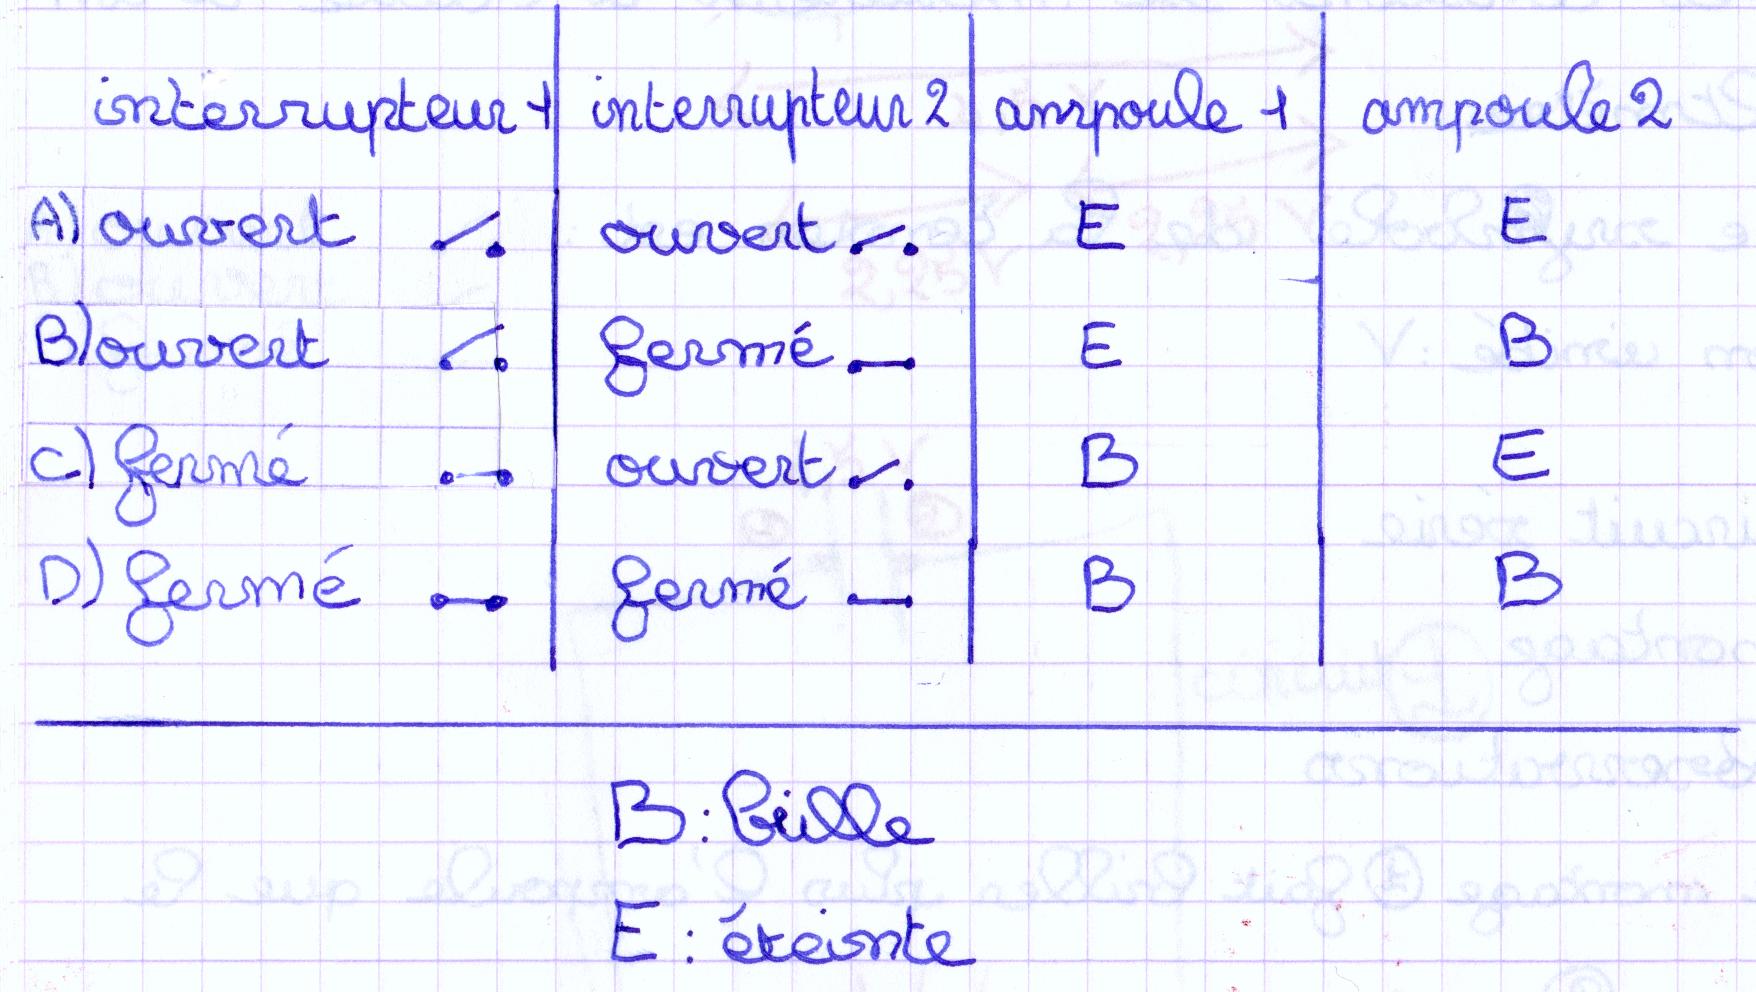 interrupteur 1 interrupteur 2 ampoule 1 ampoule 2
A) ouvert ouvert E E
B) ouvert fermé E B
C) fermé ouvert B E
D) fermé fermé B B
B : bille
E : éteinte